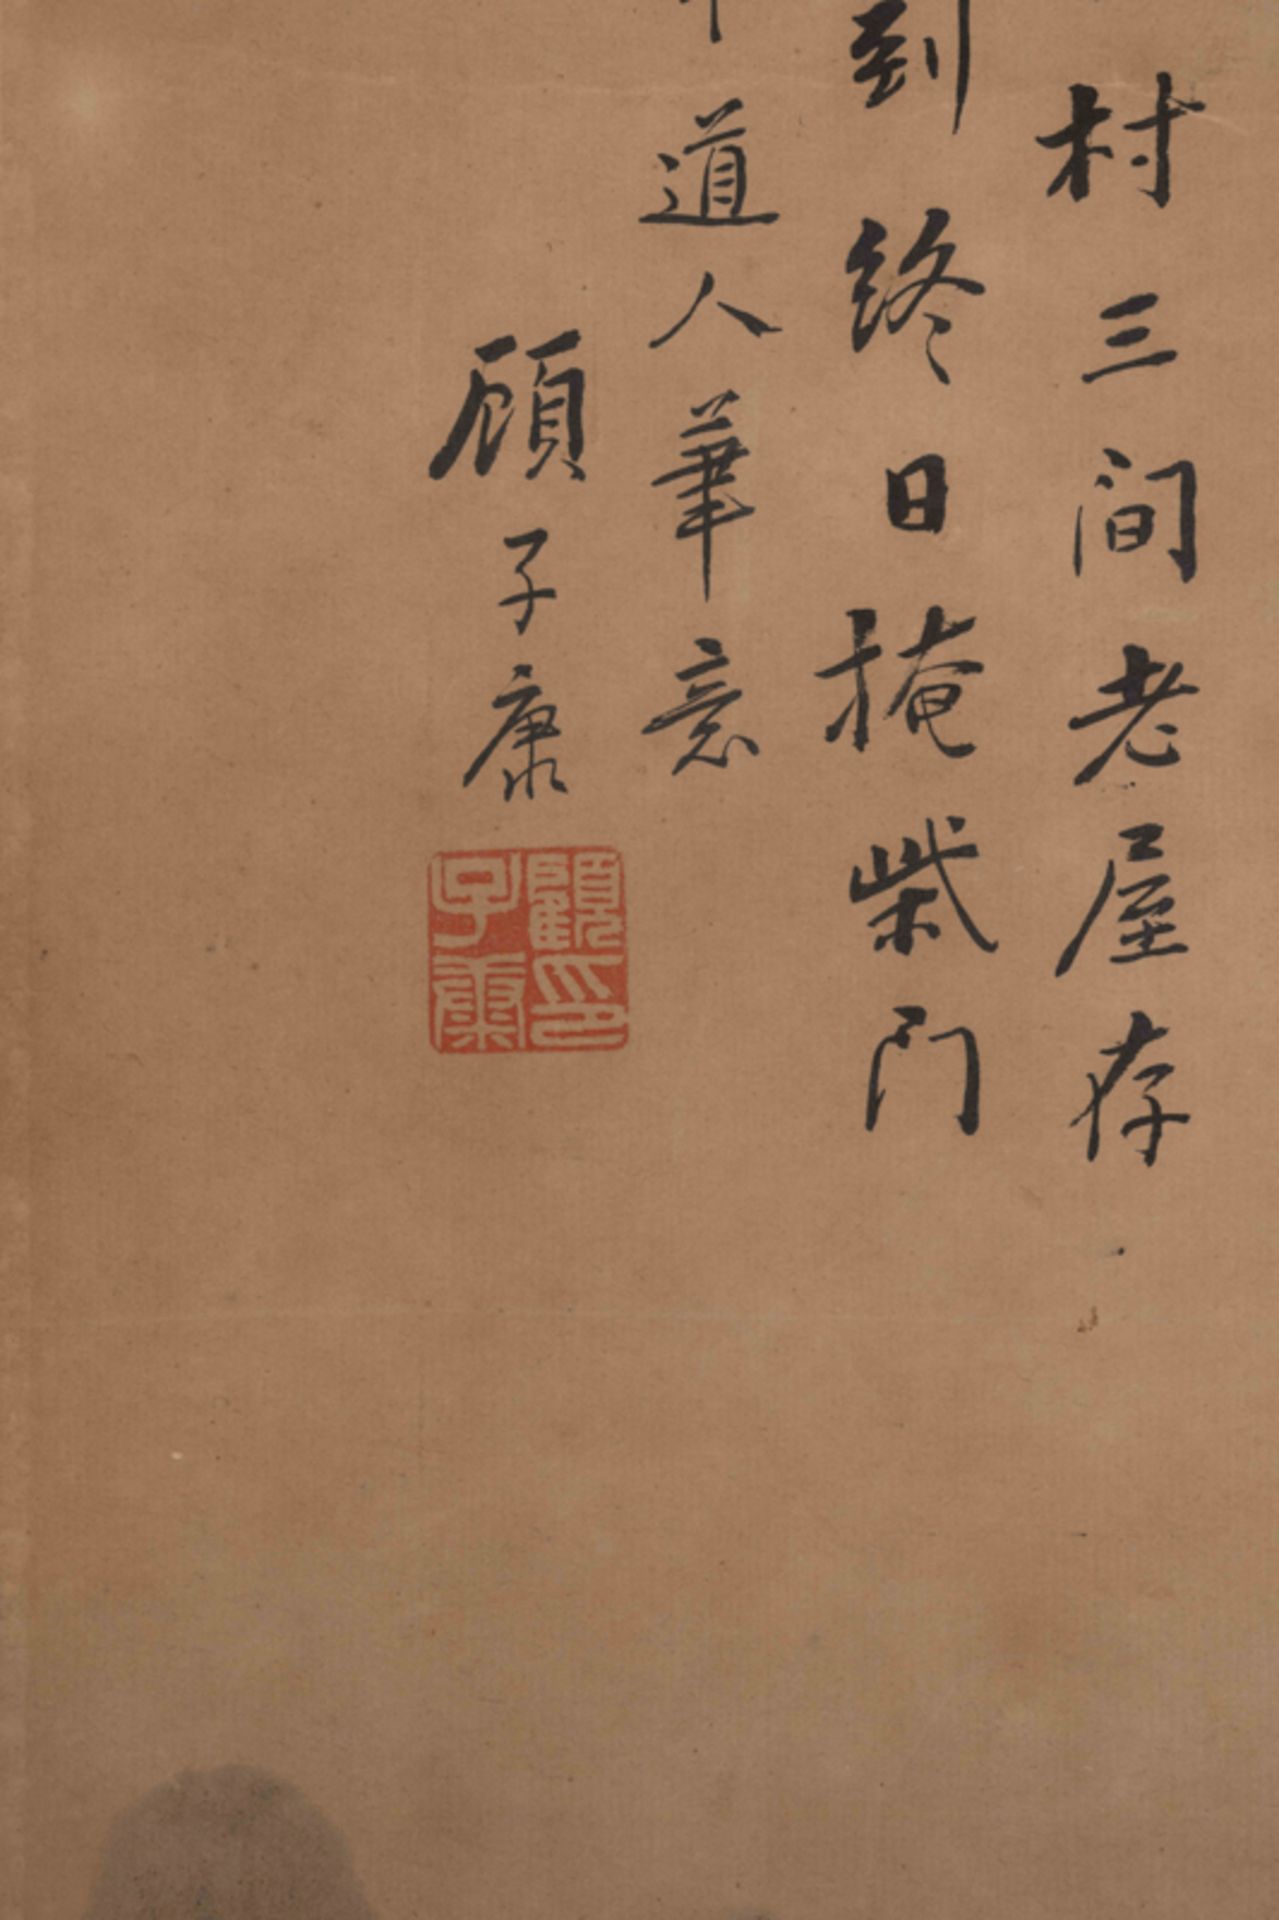 村三间老屋存
到终日掩柴门
道人華意
顾子康
顧印子康